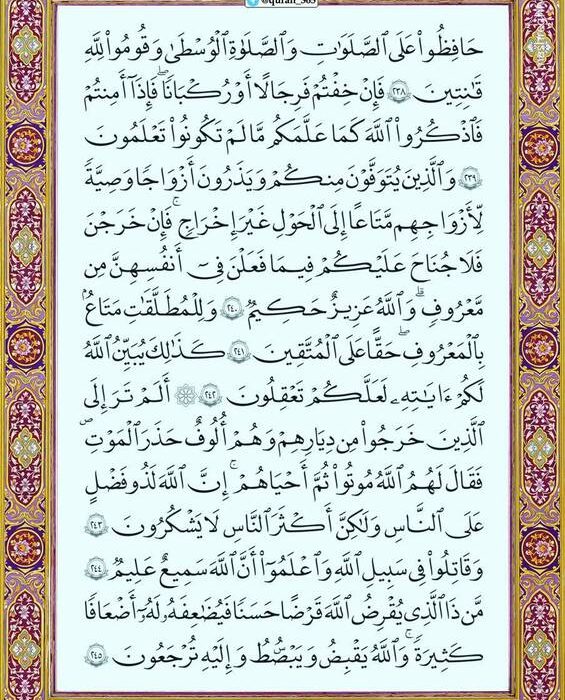 @quran_365
حَافِظُوا۟ عَلَى ٱلصَّلَوَٰتِ وَٱلصَّلَوٰةِ ٱلْوُسْطَىٰ وَقُومُوا۟ لِلَّهِ
قَٰنِتِينَ ٢٣٨ فَإِنْ خِفْتُمْ فَرِجَالًا أَوْ رُكْبَانًا ۖ فَإِذَآ أَمِنتُمْ
فَٱذْكُرُوا۟ ٱللَّهَ كَمَا عَلَّمَكُم مَّا لَمْ تَكُونُوا۟ تَعْلَمُونَ
٢٣٩ وَٱلَّذِينَ يُتَوَفَّوْنَ مِنكُمْ وَيَذَرُونَ أَزْوَٰجًا وَصِيَّةً
لِّأَزْوَٰجِهِم مَّتَٰعًا إِلَى ٱلْحَوْلِ غَيْرَ إِخْرَاجٍ ۚ فَإِنْ خَرَجْنَ
فَلَا جُنَاحَ عَلَيْكُمْ فِى مَا فَعَلْنَ فِىٓ أَنفُسِهِنَّ مِن
مَّعْرُوفٍ ۗ وَٱللَّهُ عَزِيزٌ حَكِيمٌ ٢٤٠ وَلِلْمُطَلَّقَٰتِ مَتَٰعٌۢ
بِٱلْمَعْرُوفِ ۖ حَقًّا عَلَى ٱلْمُتَّقِينَ ٢٤١ كَذَٰلِكَ يُبَيِّنُ ٱللَّهُ
لَكُمْ ءَايَٰتِهِۦ لَعَلَّكُمْ تَعْقِلُونَ ٢٤٢ ۞ أَلَمْ تَرَ إِلَى
ٱلَّذِينَ خَرَجُوا۟ مِن دِيَٰرِهِمْ وَهُمْ أُلُوفٌ حَذَرَ ٱلْمَوْتِ
فَقَالَ لَهُمُ ٱللَّهُ مُوتُوا۟ ثُمَّ أَحْيَٰهُمْ ۚ إِنَّ ٱللَّهَ لَذُو فَضْلٍ
عَلَى ٱلنَّاسِ وَلَٰكِنَّ أَكْثَرَ ٱلنَّاسِ لَا يَشْكُرُونَ ٢٤٣
وَقَٰتِلُوا۟ فِى سَبِيلِ ٱللَّهِ وَٱعْلَمُوٓا۟ أَنَّ ٱللَّهَ سَمِيعٌ عَلِيمٌ ٢٤٤
مَّن ذَا ٱلَّذِى يُقْرِضُ ٱللَّهَ قَرْضًا حَسَنًا فَيُضَٰعِفَهُۥ لَهُۥٓ أَضْعَافًا
كَثِيرَةً ۚ وَٱللَّهُ يَقْبِضُ وَيَبْصُۜطُ وَإِلَيْهِ تُرْجَعُونَ ٢٤٥